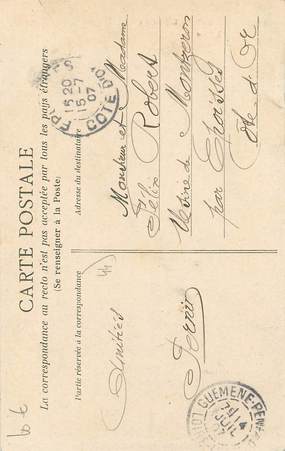 CARTE POSTALE
La correspondance au recto n'est pas acceptée par tous les pays étrangers
(Se renseigner à la Poste)
Partie réservée à la correspondance
Adresse du destinataire
44
Amitiés
Monsieur et Madame
Félix Robert
Usine de
par
Côte d'Or
15 20
15-7
07
COTE D'OR
GUEMENE-PENFAO
14
60 €